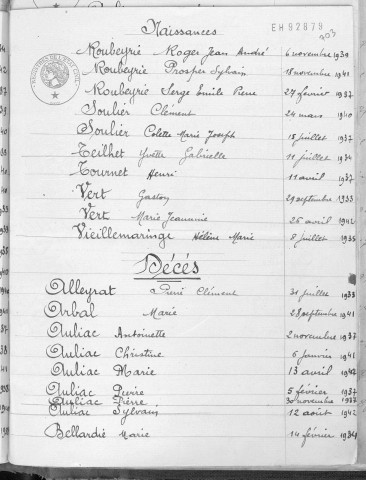 Naissances
EH92879
303
Roubeyrie Roger Jean André 6 novembre 1939
Roubeyrie Prosper Sylvain 18 novembre 1941
Roubeyrie Serge Emile Pierre 27 février 1937
Soulier Clément 24 mars 1940
Soulier Colette Marie Joseph 15 juillet 1937
Teilhet Yvette Gabrielle 11 juillet 1934
Tournet Henri 11 avril 1937
Vert Gaston 29 septembre 1933
Vert Marie Jeannine 26 avril 1942
Vieillemaringe Hélène Marie 8 juillet 1935
Décés
Alleyrat Pierre Clément 31 juillet 1938
Arbal Marie 28 septembre 1941
Auliac Antoinette 2 novembre 1937
Auliac Christine 6 janvier 1941
Auliac Marie 13 avril 1942
Auliac Pierre 5 février 1937
Auliac Pierre 30 novembre 1937
Auliac Sylvain 12 août 1942
Bellardie Marie 14 février 1934